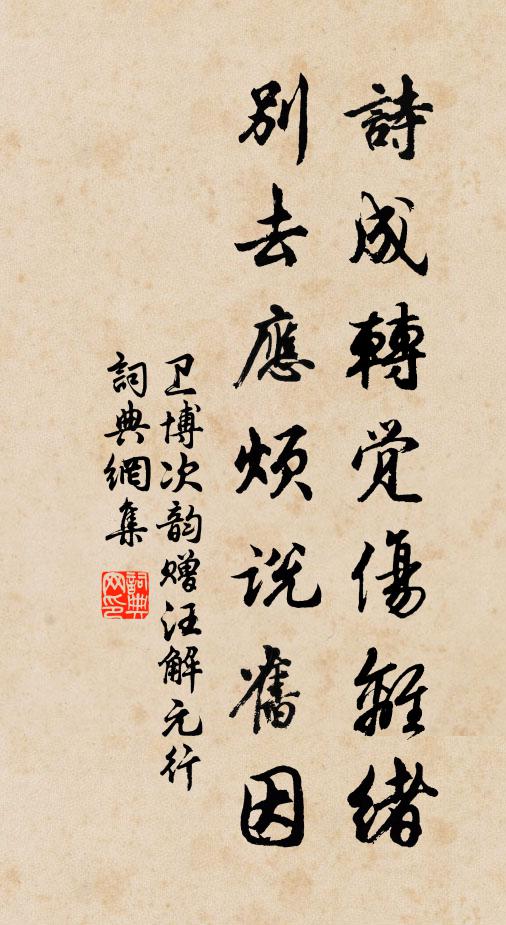 詩成轉覚傷離緒
別去應煩説舊因
卫博次韵赠汪解元行
詞典網集
詞典網印